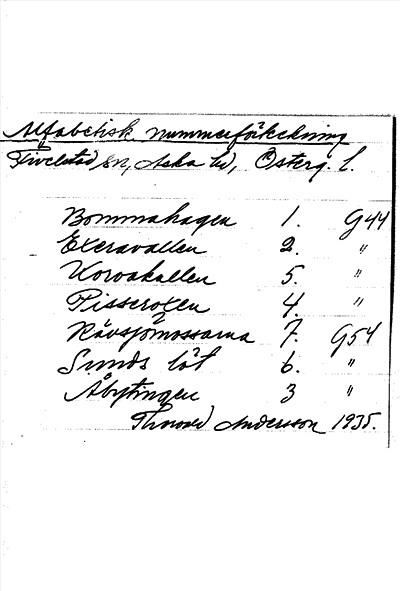 Alfabetisk nummerförteckning
Fivelstad sn, Aska hd, Österg. l.
Bommahagen 1. G44
Exeravallen 2. "
Korvakullen 5. "
Pisseroxen 4. "
Rävsjömossarna 7. G54
Sunds löt 6. "
Åbytingen 3 "
Thorvald Andersson 1935.